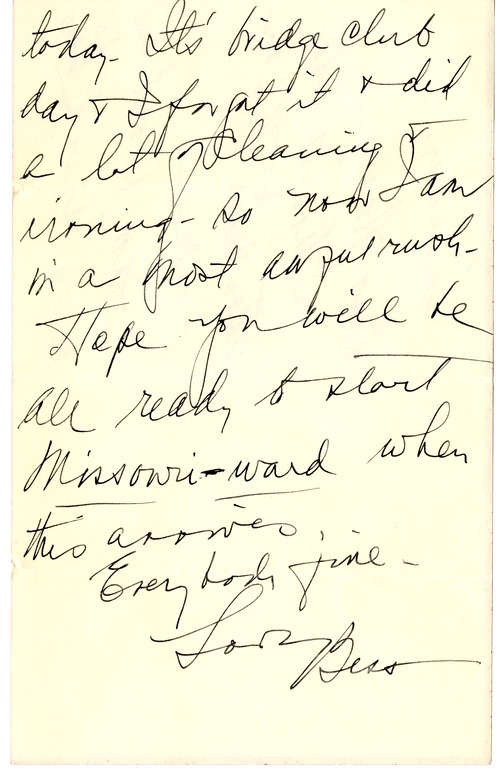 today. It's bridge club
day & I forgot it & did
a lot of cleaning &
ironing - so now I am
in a most awful rush -
Hope you will be
all ready to start
Missouri-ward when
this arrives.
Everybody fine -
Lovingly
Bess